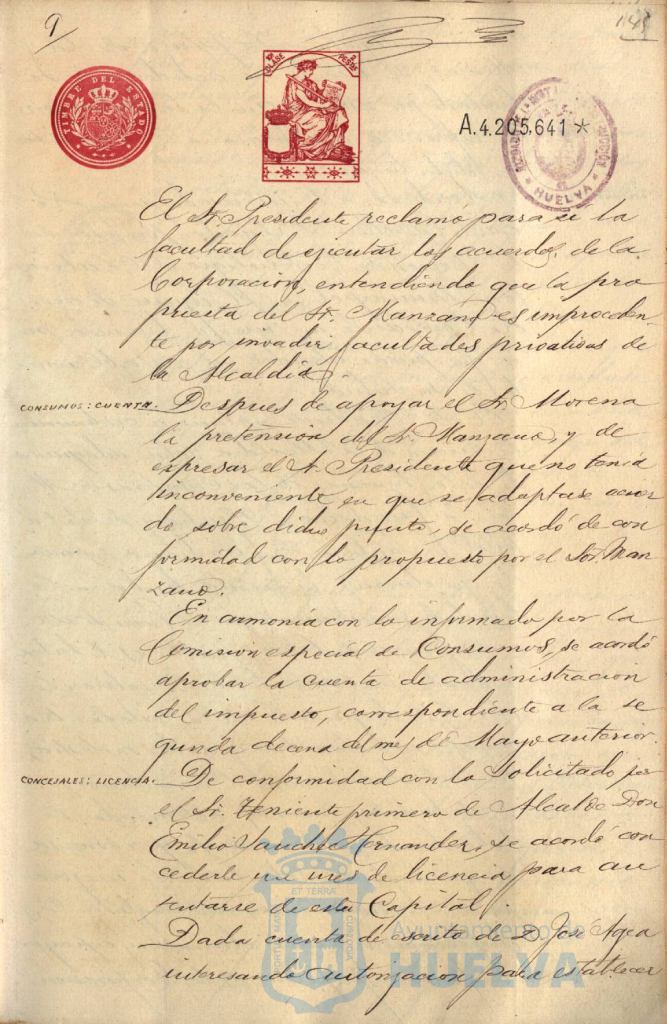 9
TIMBRE DEL ESTADO
CLASE
PESETAS
A.4.205,641 *
HUELVA
El Sr. Presidente reclamó para si la
facultad de ejecutar los acuerdos de la
Corporación, entendiendo que la pro
puesta del Sr. Manzano es improceden
te por invadir facultades privativas de
la Alcaldía.
CONSUMOS: CUENTA. Despues de apoyar el Sr. Morena
la pretensión del Sr. Manzano, y de
expresar el Sr. Presidente que no tenia
inconveniente en que se adoptase acuer
do sobre dicho punto, se acordó de con
formidad con lo propuesto por el Sor. Man
zano.
En armonía con lo informado por la
Comision especial de Consumos, se acordó
aprobar la cuenta de administracion
del impuesto, correspondiente a la se
gunda decena del mes de Mayo anterior.
CONCEJALES: LICENCIA. De conformidad con lo solicitado por
el Sr. Teniente primero de Alcalde Don
Emilio Sanchez Hernandez, se acordó con
cederle un mes de licencia para au
sentarse de esta Capital.
Dada cuenta de escrito de D. José Agea
interesando autorizacion para establecer
Ayuntamiento de
HUELVA